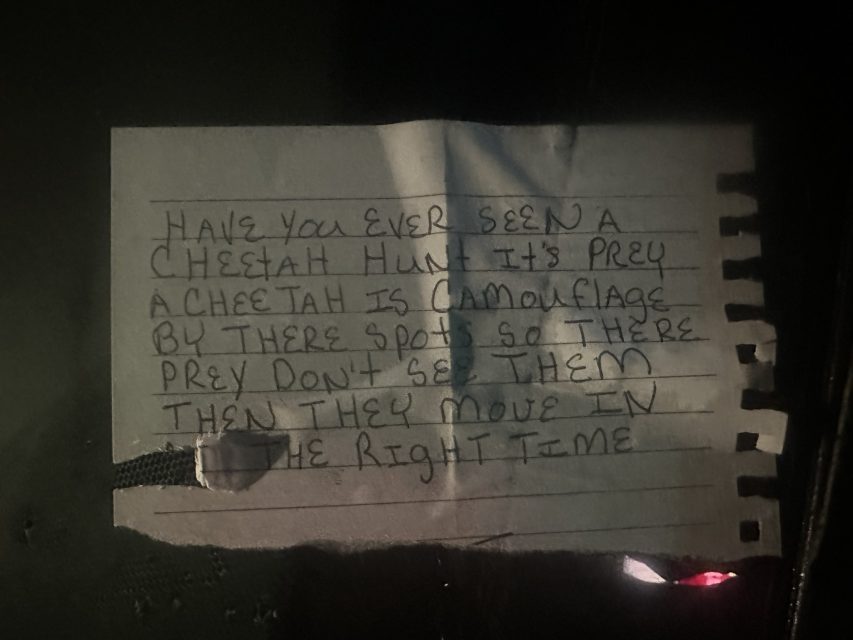 HAVE YOU EVER SEEN A
CHEETAH HUNT IT'S PREY
A CHEETAH IS CAMOUFLAGE
BY THERE SPOTS SO THERE
PREY DON'T SEE THEM
THEN THEY MOVE IN
THE RIGHT TIME